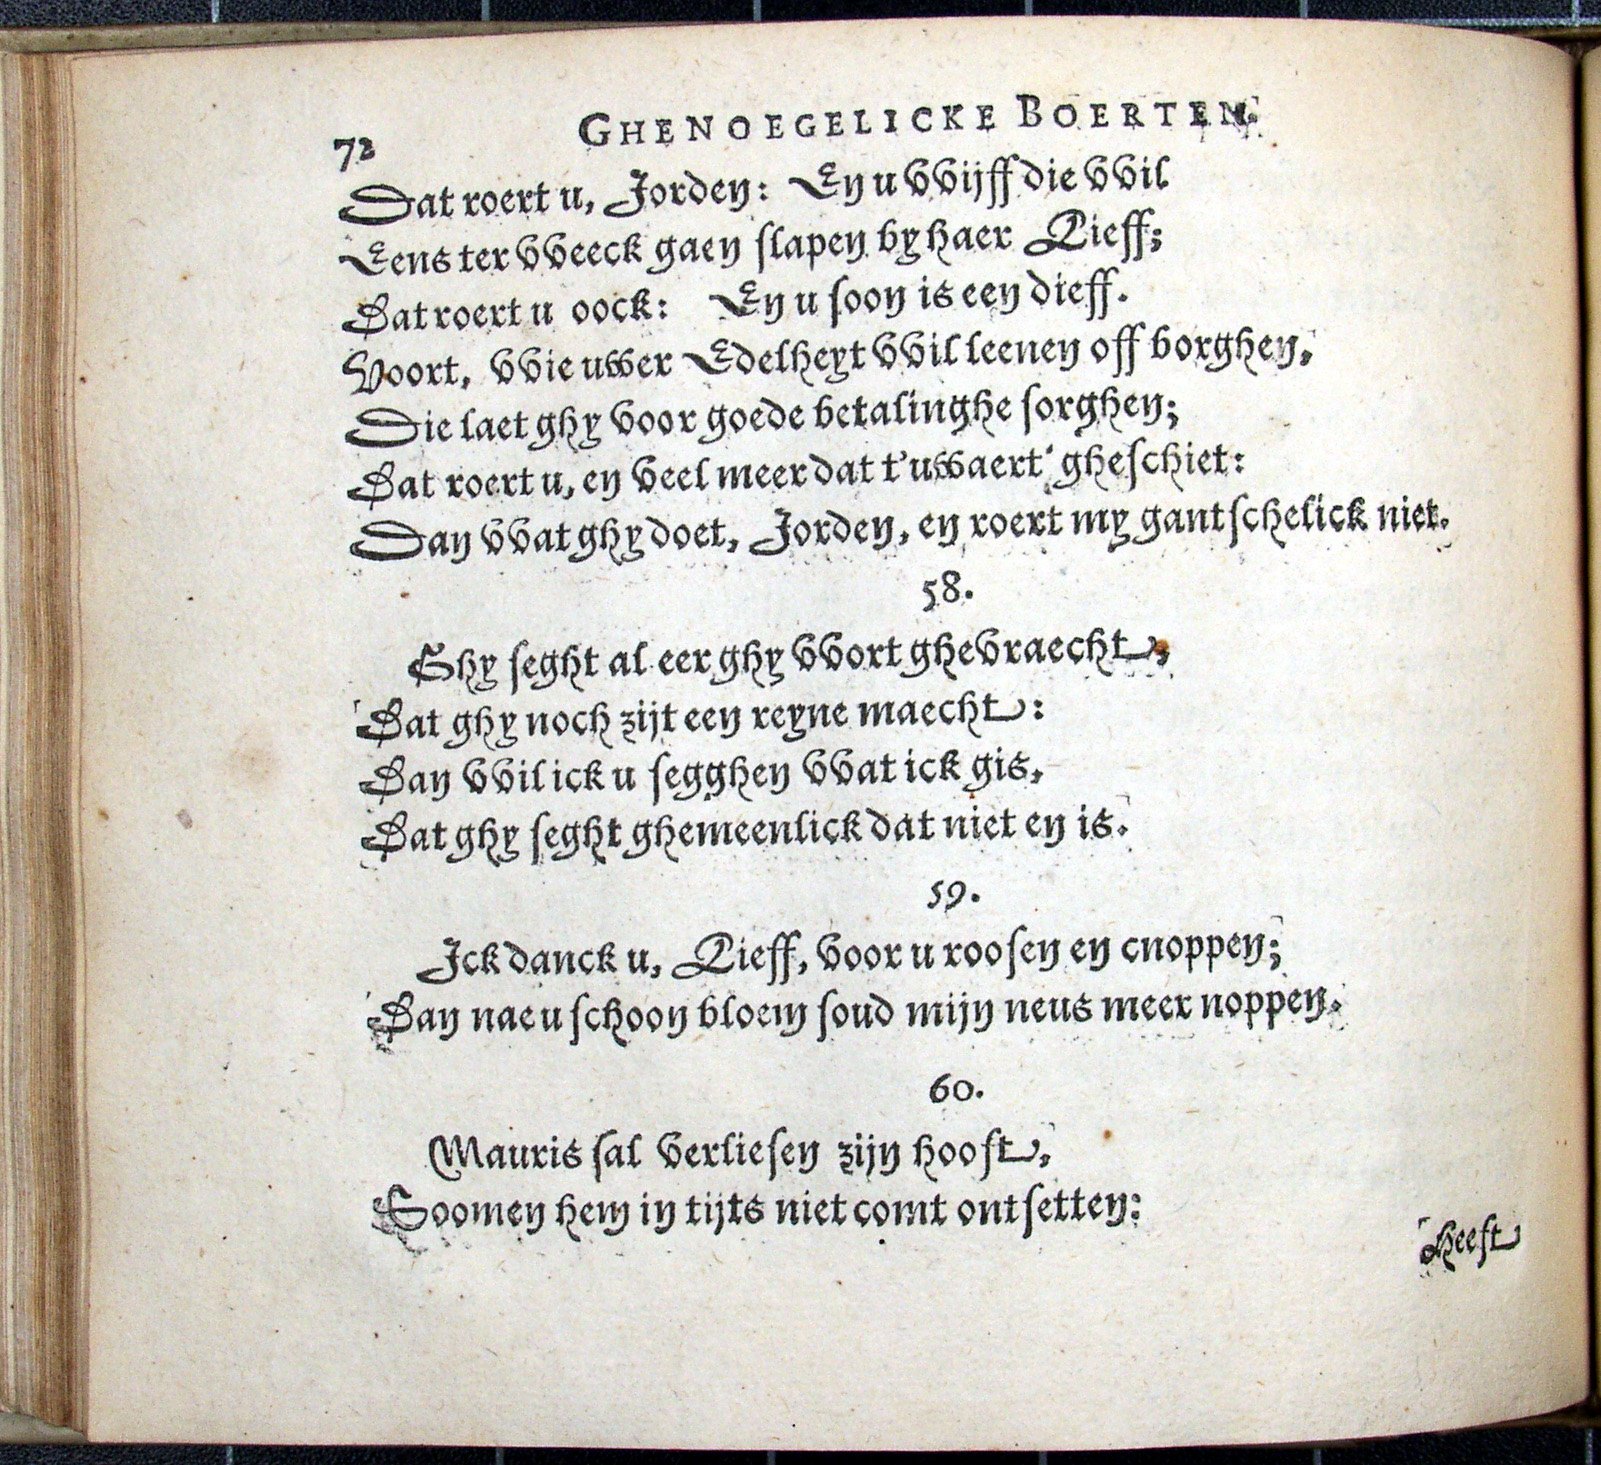 72 GHENOEGELICKE BOERTEN.
Dat roert u, Jorden: En u vvijff die vvil
Eens ter vveeck gaen slapen by haer Lieff;
Dat roert u oock: En u soon is een dieff.
Voort, vvie uwer Edelheyt vvil leenen off borghen,
Die laet ghy voor goede betalinghe sorghen;
Dat roert u, en veel meer dat t'uwaert' gheschiet:
Dan vvat ghy doet, Jorden, en roert my gantschelick niet.
58.
Ghy seght al eer ghy vvort ghevraecht,
Dat ghy noch zijt een reyne maecht:
Dan vvil ick u segghen vvat ick gis,
Dat ghy seght ghemeenlick dat niet en is.
59.
Ick danck u, Lieff, voor u roosen en cnoppen;
Dan nae u schoon bloem soud mijn neus meer noppen.
60.
Mauris sal verliesen zijn hooft,
Soomen hem in tijts niet comt ontsetten:
Heeft